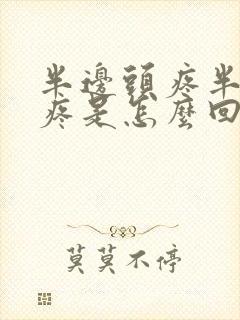 半邊頭疼半
疼是怎麼回
莫莫不停